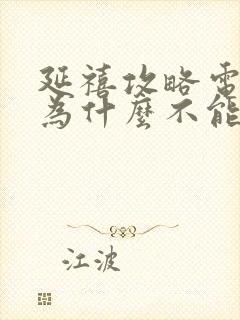 延禧攻略電
為什麼不能
江波